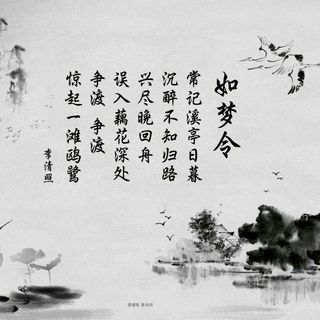 如梦令
常记溪亭日暮
沉醉不知归路
兴尽晚回舟
误入藕花深处
争渡 争渡
惊起一滩鸥鹭
李清照